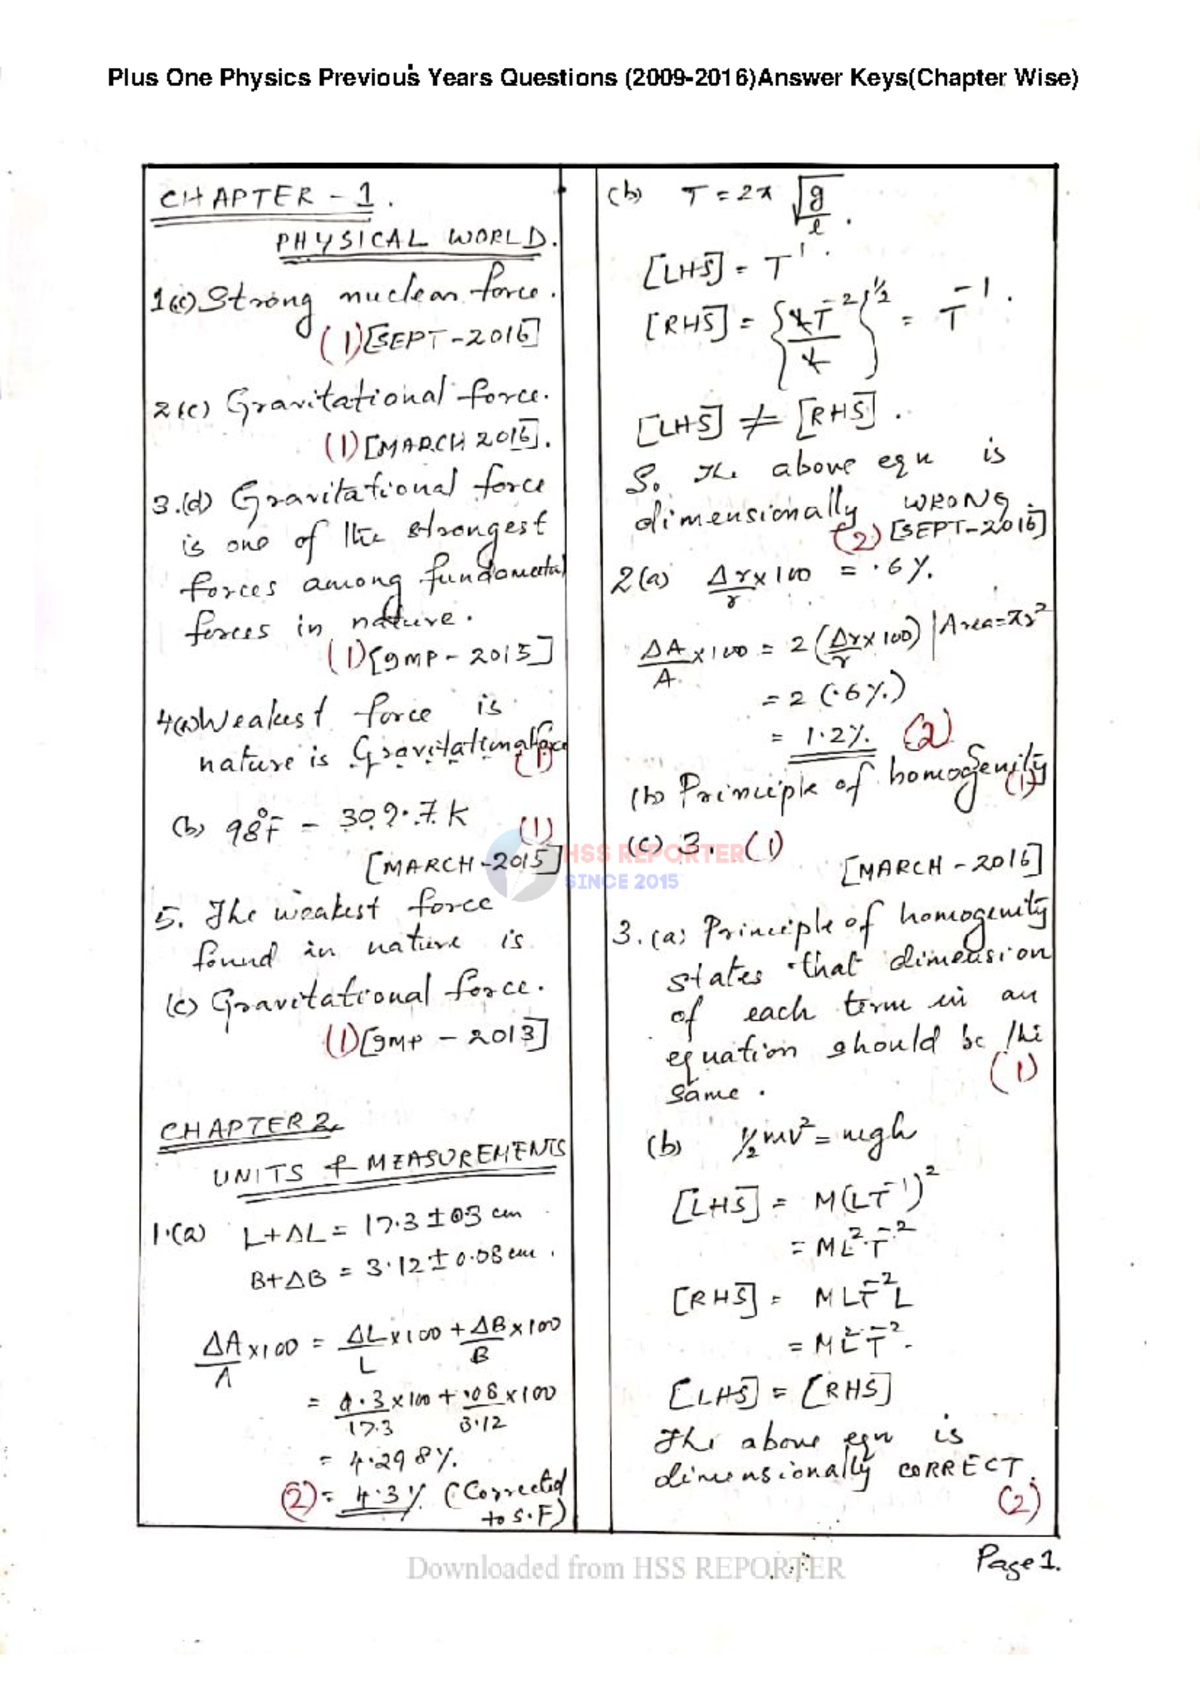 Plus One Physics Previous Years Questions (2009-2016)Answer Keys(Chapter Wise)
CHAPTER - 1.
PHYSICAL WORLD.
1(c) Strong nuclear force.
(1)[SEPT-2016]
2(c) Gravitational force.
(1)[MARCH 2016].
3.(d) Gravitational force
is one of the strongest
forces among fundamental
forces in nature.
(1)[gMP - 2015]
4(a) Weakest force is
nature is Gravitational force
(1)
(b) 98°F - 309.7K (1)
[MARCH-2015]
5. The weakest force
found in nature is
(c) Gravitational force.
(1)[gMP - 2013]
CHAPTER 2.
UNITS & MEASUREMENTS
1.(a) L+ΔL = 17.3 ± 03 cm
B+ΔB = 3.12 ± 0.08 cm.
ΔA/A x100 = ΔL/L x100 + ΔB/B x100
= 0.3/17.3 x100 + .08/3.12 x100
= 4.298%.
(2) = 4.3% (Corrected
to S.F)
(b) T = 2π √(g/l).
[LHS] = T¹.
[RHS] = {LT⁻²/L}^½ = T⁻¹.
[LHS] ≠ [RHS].
So the above eqn is
dimensionally WRONG.
(2) [SEPT-2016]
2(a) Δr/r x100 = .6%.
ΔA/A x100 = 2 (Δr/r x100) | Area=πr²
= 2 (.6%)
= 1.2%. (2)
(b) Principle of homogenity
(1)
(c) 3. (1)
[MARCH - 2016]
HSS REPORTER
SINCE 2015
3.(a) Principle of homogenity
states that dimension
of each term in an
equation should be the
same. (1)
(b) ½mv² = mgh
[LHS] = M(LT⁻¹)²
= ML²T⁻²
[RHS] = MLT⁻²L
= ML²T⁻².
[LHS] = [RHS]
The above eqn is
dimensionally CORRECT.
(2)
Page 1.
Downloaded from HSS REPORTER